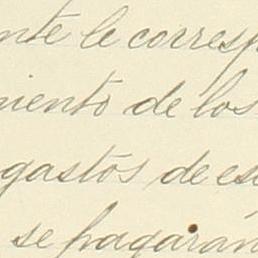 nte le corresp
miento de los
gastos de es
se pagaran